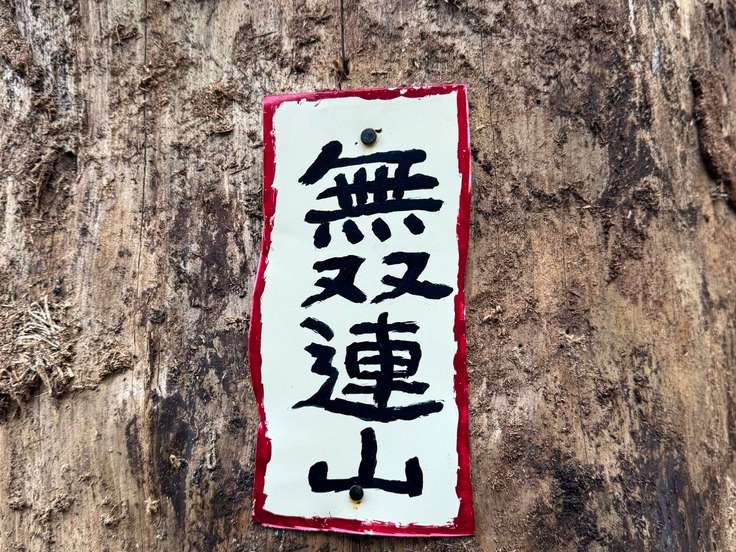 無双連山